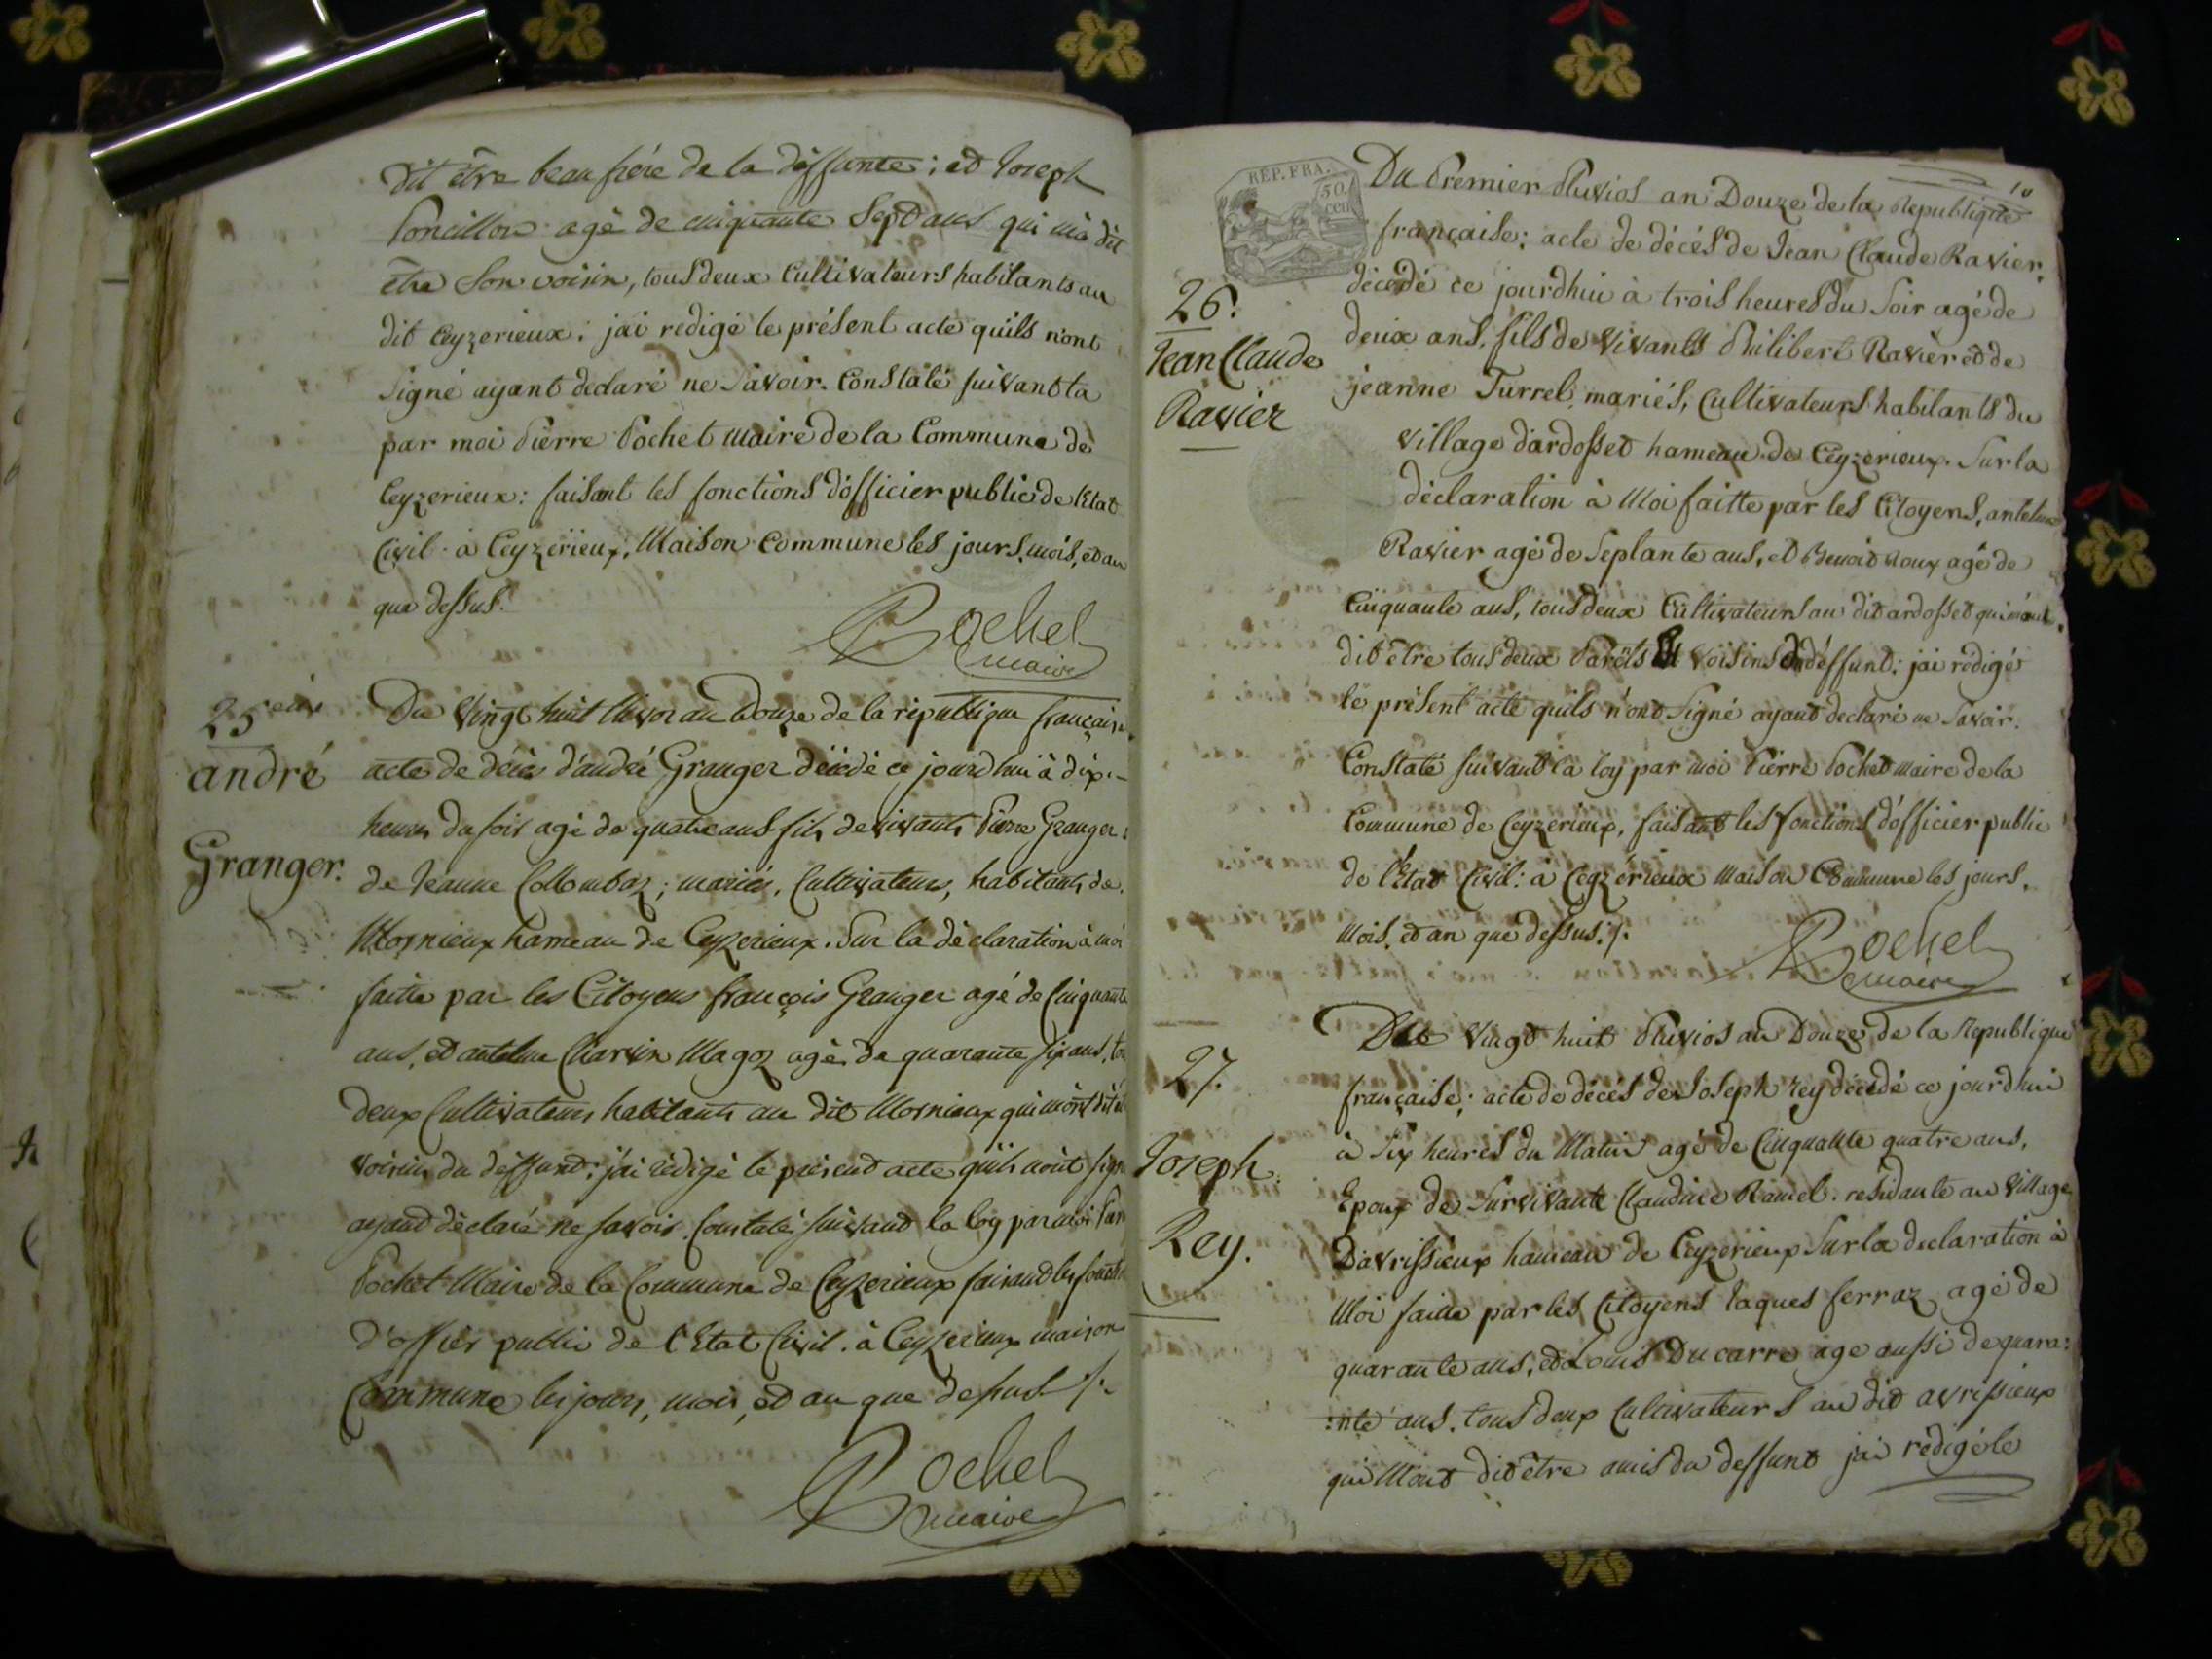 dit être beau frére de la déffunte; et Joseph
Poncillon agé de cinquante Sept ans qui m'a dit
être Son voisin, tous deux Cultivateurs habitants au
dit Ceyzerieux; jai redigé le présent acte quils n'ont
Signé ayant declaré ne Savoir. Constaté suivant la
par moi Pierre Pochet Maire de la Commune de
Ceyzerieux: faisant les fonctions dófficier public de l'Etat
Civil à Ceyzerieux, Maison Commune les jours, mois, et an
que dessus.
Pochet
maire
25eme
andré
Granger.
Du Vingt huit Nivos an Douze de la république française
acte de décès d'andré Granger décédé ce jourdhui à dix
heures du soir agé de quatre ans fils de vivants Pierre Granger:
de Jeanne Collombaz; mariés, Cultivateurs, habitants de
Mornieux hameau de Ceyzerieux. Sur la déclaration à moi
faitte par les Citoyens françois Granger agé de Cinquante
ans, et antelme Charvin Magoz agé de quarante six ans, to
deux Cultivateurs habitants au dit Mornieux qui m'ont dit ê
voisins du déffunt; j'ai rédigé le présent acte quils n'ont sign
ayant déclaré ne savoir. Constaté suivant la loy par moi Pier
Pochet Maire de la Commune de Ceyzerieux faisant les foncti
d'offier public de l'Etat Civil. à Ceyzerieux maison
Commune les jours, mois, et an que dessus ./.
Pochet
maire
10
REP. FRA.
50
cen
Du Premier Pluvios an Douze de la Republique
française; acte de décés de Jean Claude Ravier,
décédé ce jourdhui à trois heures du Soir agé de
deux ans, fils de Vivants Philibert Ravier et de
jeanne Turrel mariés, Cultivateurs habitants du
village dardosset hameau de Ceyzerieux. Sur la
déclaration à Moi faitte par les Citoyens, antelme
Ravier agé de Septante ans, et Benoit Roux agé de
Cinquante ans, tous deux Cultivateurs au dit ardosset qui m'ont
dit être tous deux Parents Et voisins du déffunt: jai rédigé
le présent acte quils n'ont Signé ayant declaré ne Savoir.
Constaté suivant la loy par moi Pierre Pochet maire de la
Commune de Ceyzerieux, faisant les fonctions dófficier public
de l'Etat Civil: à Ceyzérieux Maison Commune les jours,
Mois, et an que dessus. /.
26.
Jean Claude
Ravier
Pochet
maire
27.
Joseph
Rey.
Du Vingt huit Pluvios an Douze de la Republique
française; acte de décés de Joseph Rey décédé ce jourdhui
à Six heures du Matin agé de Cinquante quatre ans,
Epoux de Survivante Claudine Ramel. residante au Village
Davrissieux hameau de Ceyzerieux Sur la declaration à
Moi faitte par les Citoyens Jaques ferraz agé de
quarante ans, et Louis Ducarre age aussi de quara:
:nte ans. tous deux Cultivateurs au dit avrissieux
qui M'ont dit être amis du deffunt jai redigé le